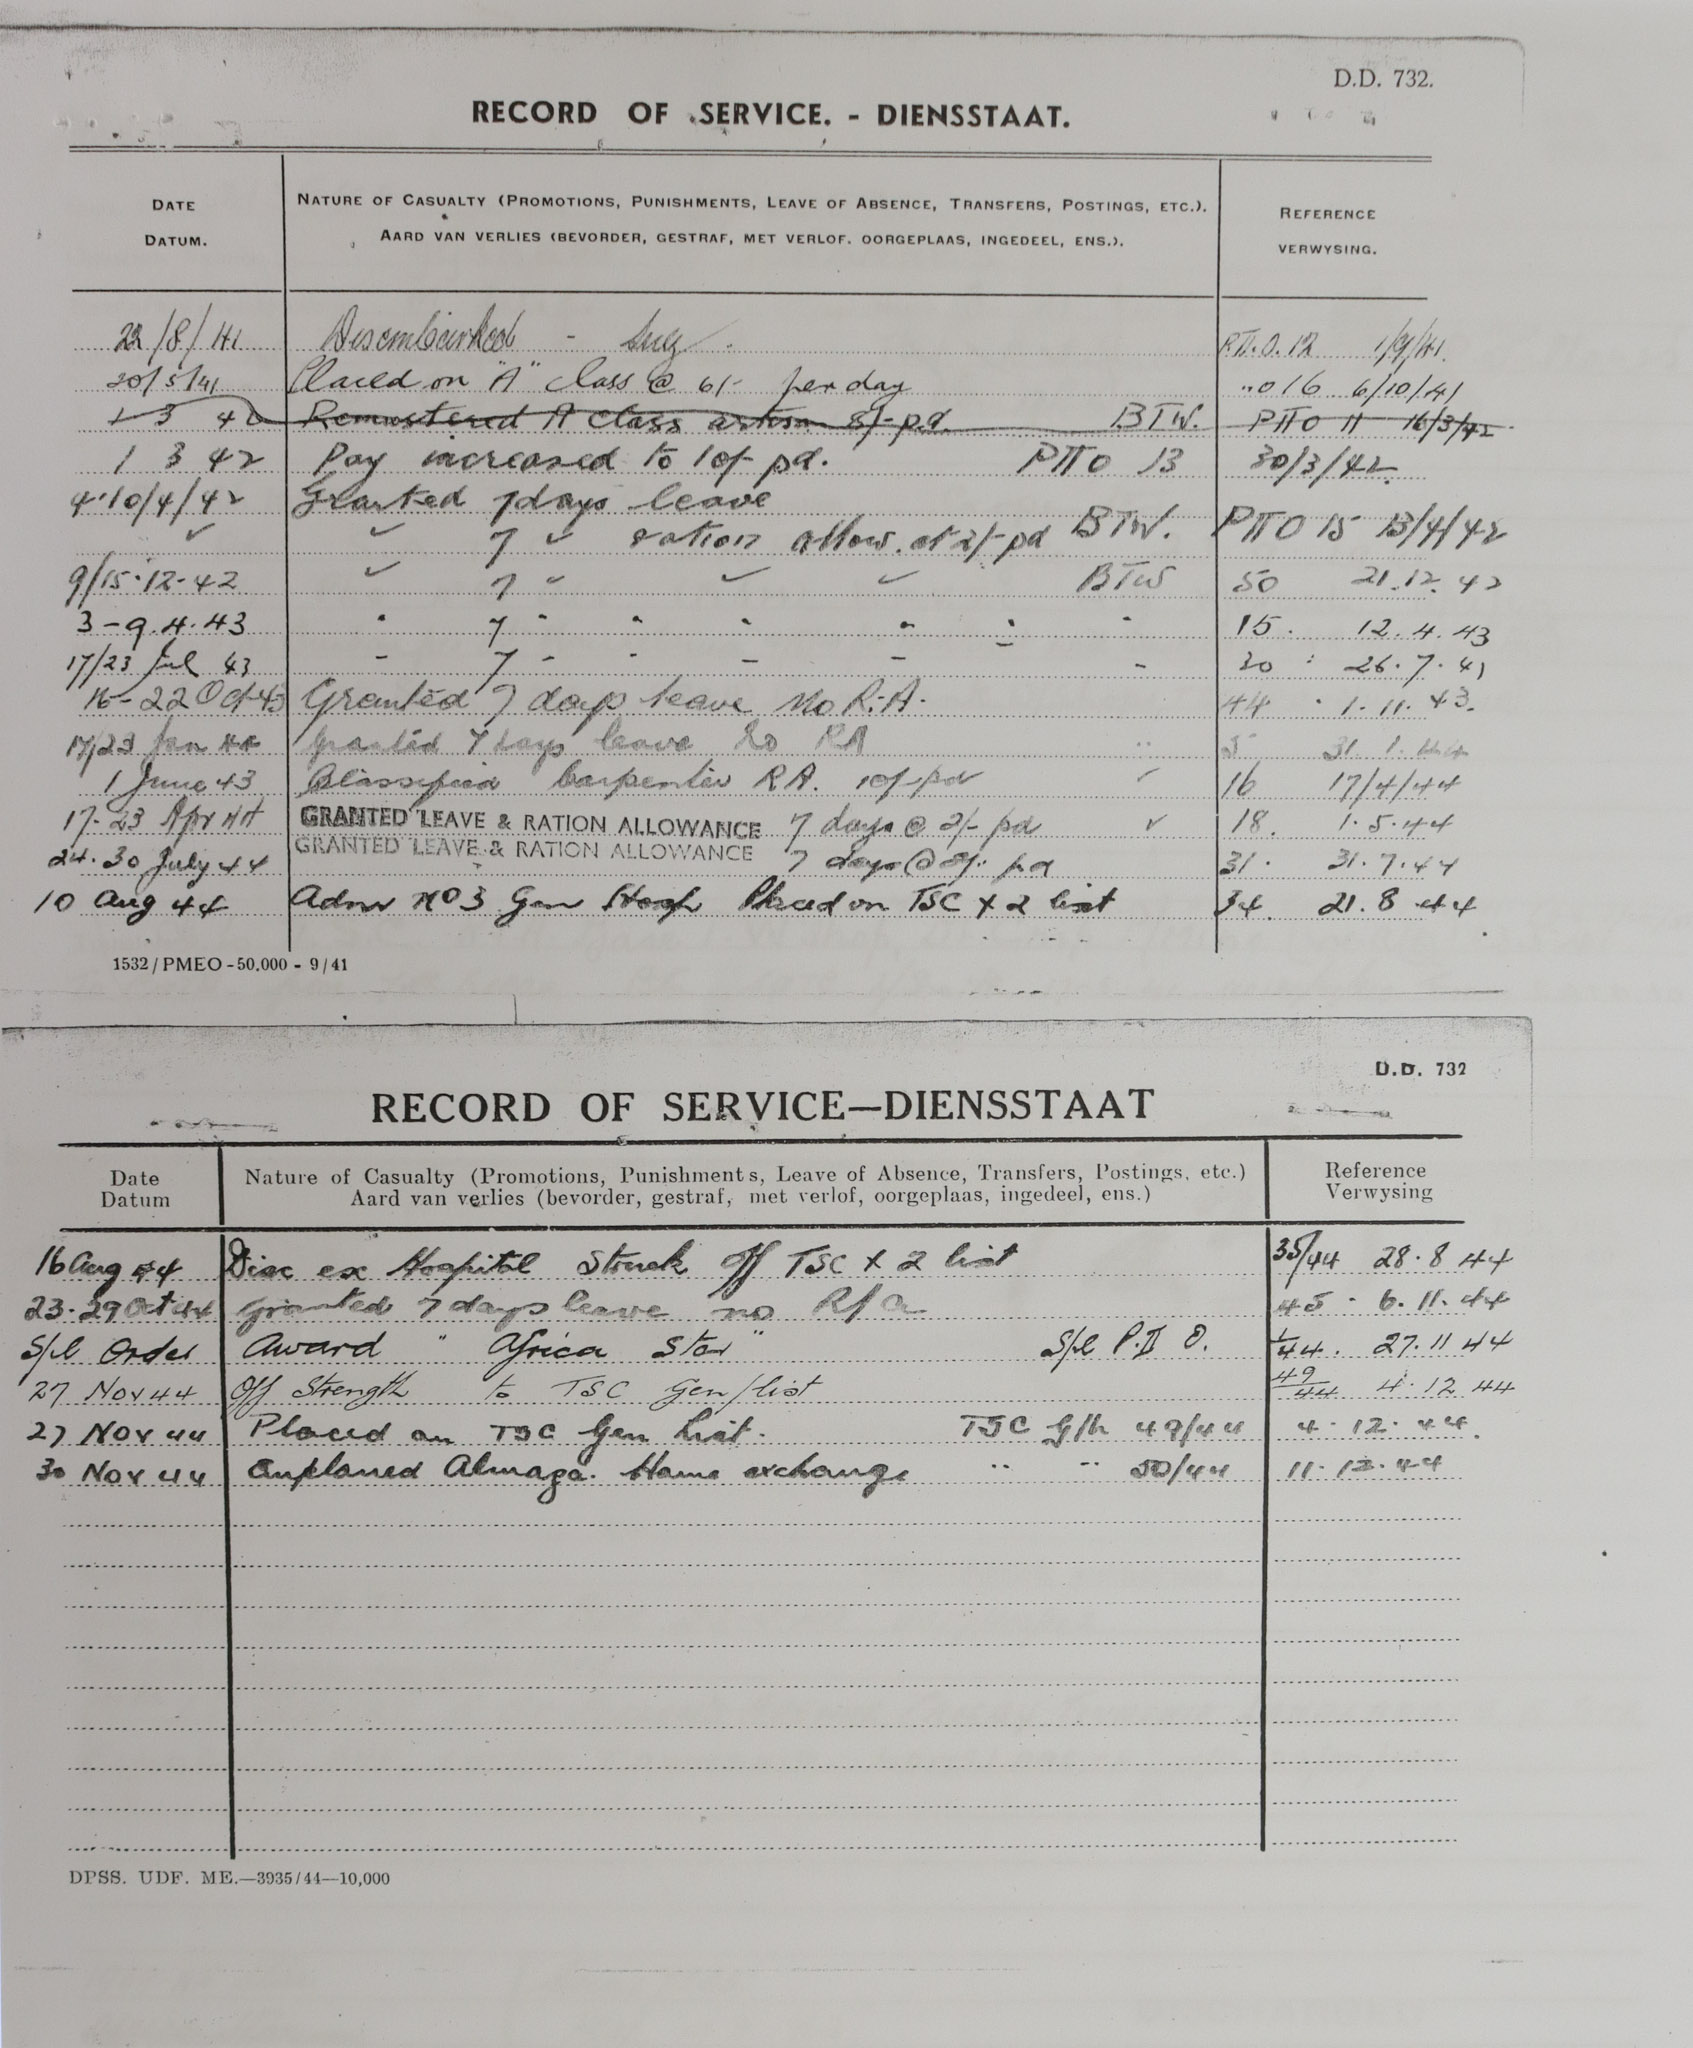 D.D. 732.
RECORD OF SERVICE. - DIENSSTAAT.
DATE
DATUM.
NATURE OF CASUALTY (PROMOTIONS, PUNISHMENTS, LEAVE OF ABSENCE, TRANSFERS, POSTINGS, ETC.).
AARD VAN VERLIES (BEVORDER, GESTRAF, MET VERLOF. OORGEPLAAS, INGEDEEL, ENS.).
REFERENCE
VERWYSING.
22/8/41 Disembarked - Suez. PII.O.12 1/9/41
20/5/41 Placed on "A" Class @ 6/- per day " 0 16 6/10/41
1 3 42 Remustered A Class artisan 8/- p.d. BTW. PIIO 11 16/3/42
1 3 42 Pay increased to 10/- pd. PIIO 13 30/3/42
4-10/4/42 Granted 7 days leave
" " 7 " ration allow. at 2/- pd BTW. PIIO 15 13/4/42
9/15-12-42 " 7 " " " BTW 50 21.12.42
3-9.4.43 " 7 " " " " " " 15. 12.4.43
17/23 Jul 43 " 7 " " " " 30 26.7.43
16-22 Oct 43 Granted 7 days leave No R.A. 44 1.11.43.
17/23 Jan 44 Granted 7 days leave No RA " 5 31.1.44
1 June 43 Classified Carpenter R.A. 10/- pd " 16 17/4/44
17-23 Apr 44 GRANTED LEAVE & RATION ALLOWANCE 7 days @ 2/- pd " 18. 1.5.44
24.30 July 44 GRANTED LEAVE & RATION ALLOWANCE 7 days @ 2/- pd 31. 31.7.44
10 Aug 44 Adm No 3 Gen Hosp Placed on TSC X 2 list 34. 21.8.44
1532/PMEO-50.000 - 9/41
D.D. 732
RECORD OF SERVICE—DIENSSTAAT
Date
Datum
Nature of Casualty (Promotions, Punishments, Leave of Absence, Transfers, Postings, etc.)
Aard van verlies (bevorder, gestraf, met verlof, oorgeplaas, ingedeel, ens.)
Reference
Verwysing
16 Aug 44 Disc ex Hospital Struck off TSC X 2 list 35/44 28.8.44
23-29 Oct 44 Granted 7 days leave no R/A 45 - 6.11.44
Spl Order Award "Africa Star" Spl P.II O. 1/44. 27.11.44
27 Nov 44 Off Strength to TSC Gen/list 49/44 4.12.44
27 Nov 44 Placed on TSC Gen List. TSC G/L 49/44 4.12.44.
30 Nov 44 Emplaned Almaza. Home exchange " " 50/44 11.12.44
DPSS. UDF. ME.—3935/44—10,000